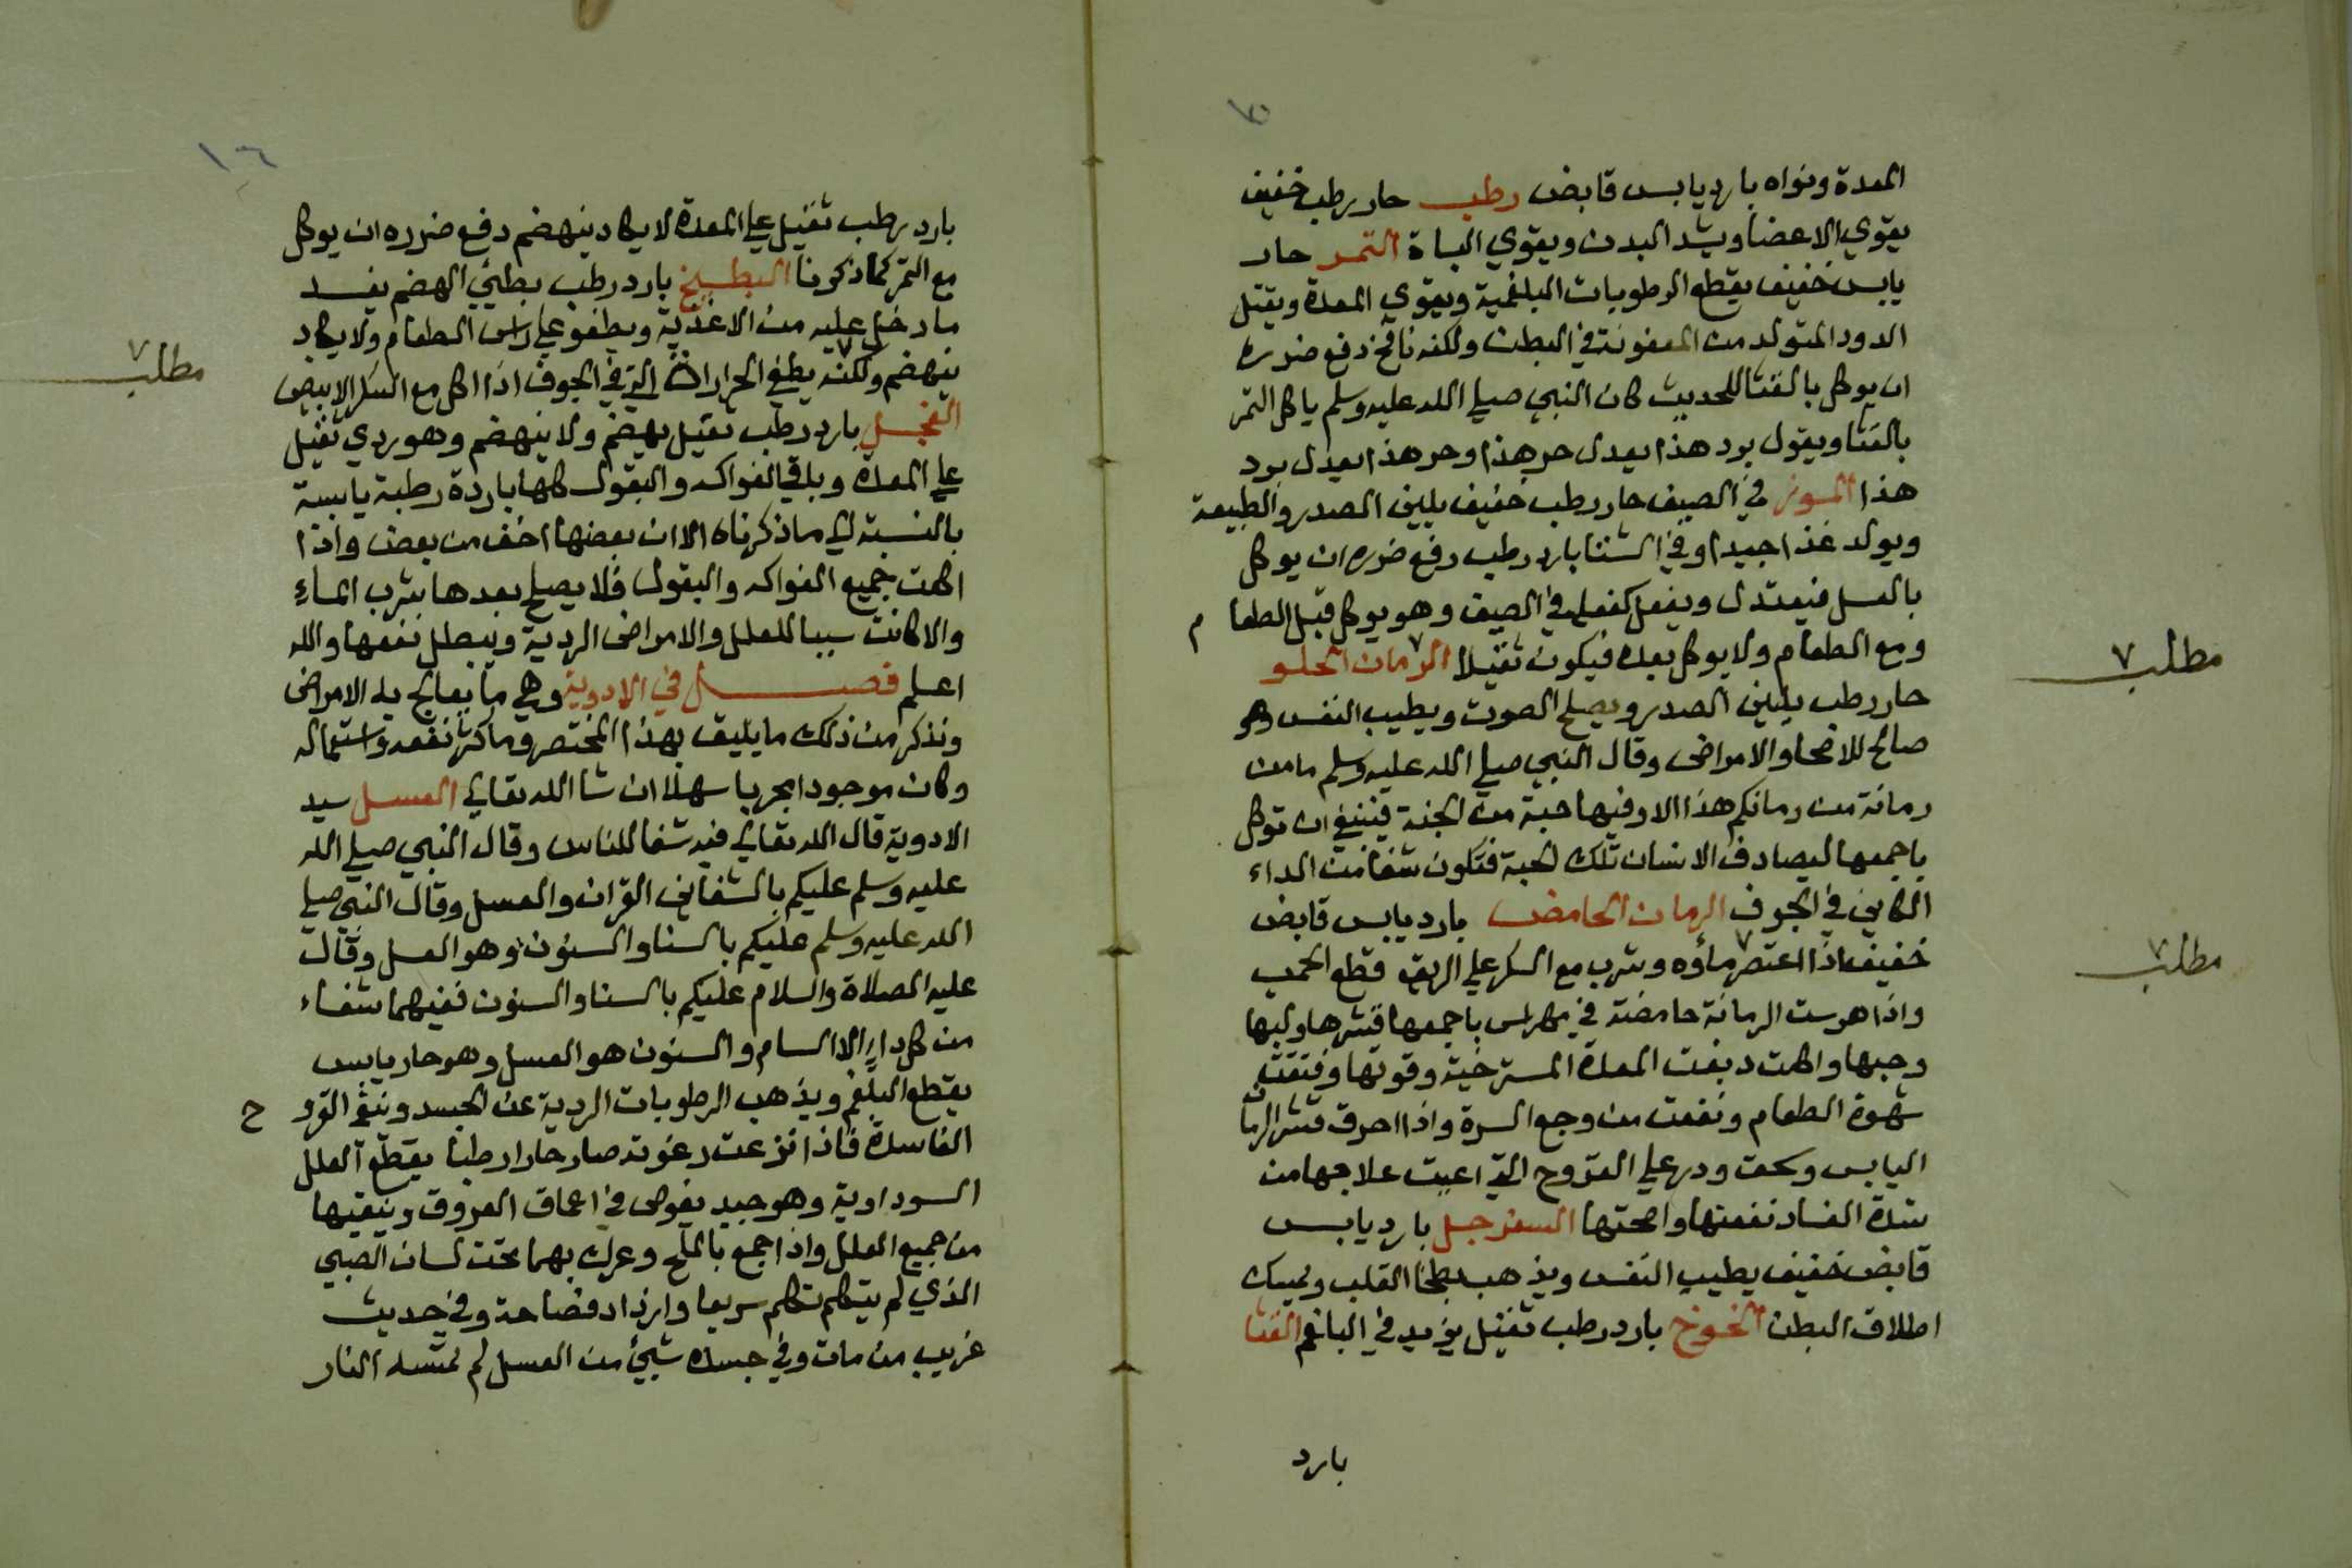 ١٥
المعدة ونواه بارد يابس قابض رطب حار رطب خفيف
يقوي الاعضا ويشد البدن ويقوي الباة التمر حار
يابس خفيف يقطع الرطوبات البلغمية ويقوي المعدة ويقتل
الدود المتولد من العفونة في البطن ولكنه نافخ دفع ضرره
ان يوكل بالقثا للحديث كان النبي صلي الله عليه وسلم ياكل التمر
بالقثا ويقول برد هذا يعدل حر هذا وحر هذا يعدل برد
هذا الموز في الصيف حار رطب خفيف يلين الصدر والطبيعة
ويولد غذا جيدا وفي الشتا بارد رطب دفع ضرره ان يوكل
بالعسل فيعتدل ويفعل كفعله في الصيف وهو يوكل قبل الطعا م
ومع الطعام ولا يوكل بعده فيكون ثقيلا الرمان الحلو
مطلب ٧
حار رطب يلين الصدر ويصلح الصوت ويطيب النفس وهو
صالح للاصحا والامراض وقال النبي صلي الله عليه وسلم ما من
رمانة من رمانكم هذا الا وفيها حبة من الجنة فينبغي ان توكل
باجمعها ليصادف الانسان تلك الحبة فتكون شفا من الداء
الكاين في الجوف الرمان الحامض بارد يابس قابض
خفيف اذا اعتصر ماؤه وشرب مع السكر علي الريق قطع الحمي
مطلب ٧
واذا هرست الرمانة حامضة في مهراس باجمعها قشرها ولبها
وحبها واكلت دبغت المعدة المسترخية وقوتها وفتقت
شهوة الطعام ونفعت من وجع السرة واذا احرق قشر الرمان
اليابس وسحق وذر علي القروح التي اعيت علاجها من
شدة الفساد نفعتها واصحتها السفرجل بارد يابس
قابض خفيف يطيب النفس ويذهب بطخا القلب ويمسك
اطلاق البطن الخوخ بارد رطب ثقيل يزيد في البلغم القثا
بارد
١٦
بارد رطب ثقيل علي المعدة لا يكاد ينهضم دفع ضرره ان يوكل
مع التمر كما ذكرنا البطيخ بارد رطب بطيئ الهضم يفسد
ما دخل عليه من الاغذية ويطفو علي راس الطعام ولا يكاد
ينهضم ولكنه يطفي الحرارات التي في الجوف اذا اكل مع السكر الابيض
مطلب ٧
الفجل بارد رطب ثقيل يهضم ولا ينهضم وهو ردي ثقيل
علي المعدة وباقي الفواكه والبقول كلها باردة رطبة يابسة
بالنسبة الي ما ذكرناه الا ان بعضها اخف من بعض واذا
اكلت جميع الفواكه والبقول فلا يصلح بعدها شرب الماء
والا كانت سببا للعلل والامراض الردية ويبطل نفعها والله
اعلم فصل في الادوية وهي ما يعالج به الامراض
ونذكر من ذلك ما يليق بهذا المختصر وما كثر نفعه واستعماله
وكان موجودا مجربا سهلا ان شا الله تعالي العسل سيد
الادوية قال الله تعالي فيه شفا للناس وقال النبي صلي الله
عليه وسلم عليكم بالشفاين القران والعسل وقال النبي صلي
الله عليه وسلم عليكم بالسنا والسنون وهو العسل وقال
عليه الصلاة والسلام عليكم بالسنا والسنون ففيهما شفاء
من كل داء الا السام والسنون هو العسل وهو حار يابس
يقطع البلغم ويذهب الرطوبات الردية عن الجسد وينقي القرو ح
الفاسدة فاذا نزعت رغوته صار حارا رطبا يقطع العلل
السوداوية وهو جيد يغوص في اعماق العروق وينقيها
من جميع العلل واذا جمع بالملح وعرك بهما تحت لسان الصبي
الذي لم يتكلم تكلم سريعا وازداد فصاحة وفي حديث
غريب من مات وفي جسده شيئ من العسل لم تمسه النار